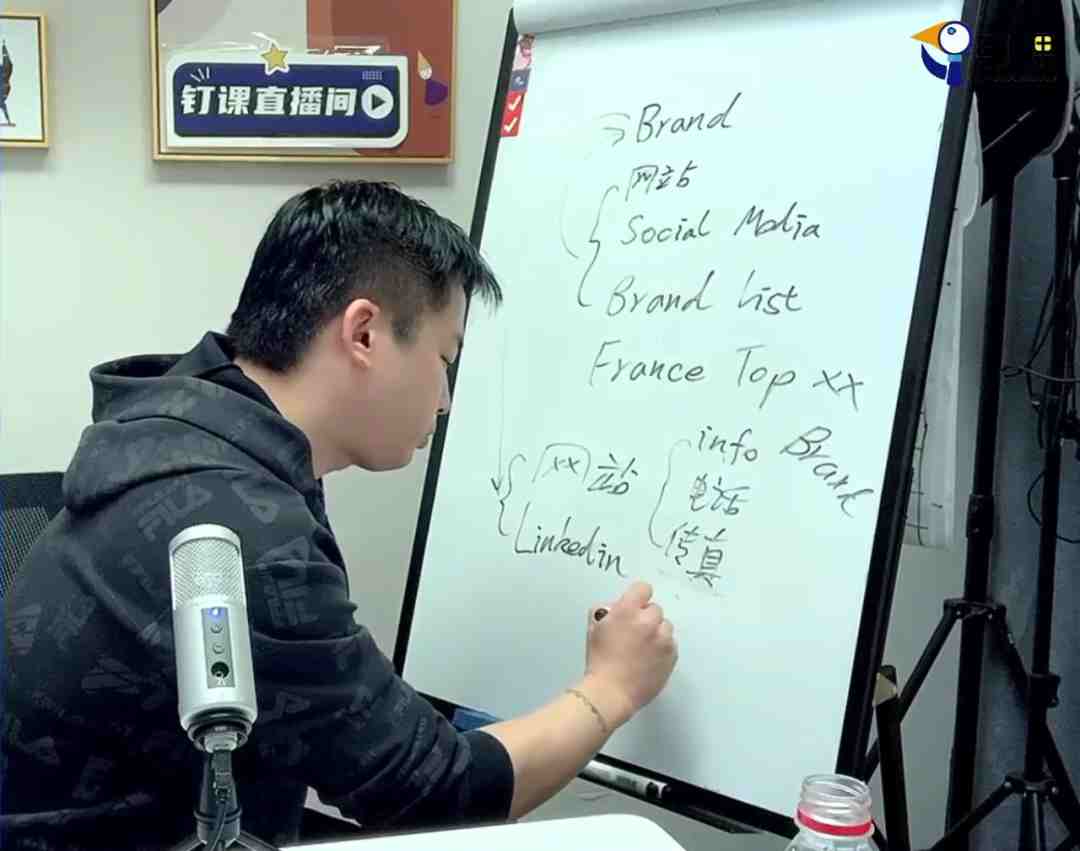 钉课直播间
Brand
网站
Social Media
Brand List
France Top xx
xx 站
Linkedin
info Brand
电话
传真
FILA